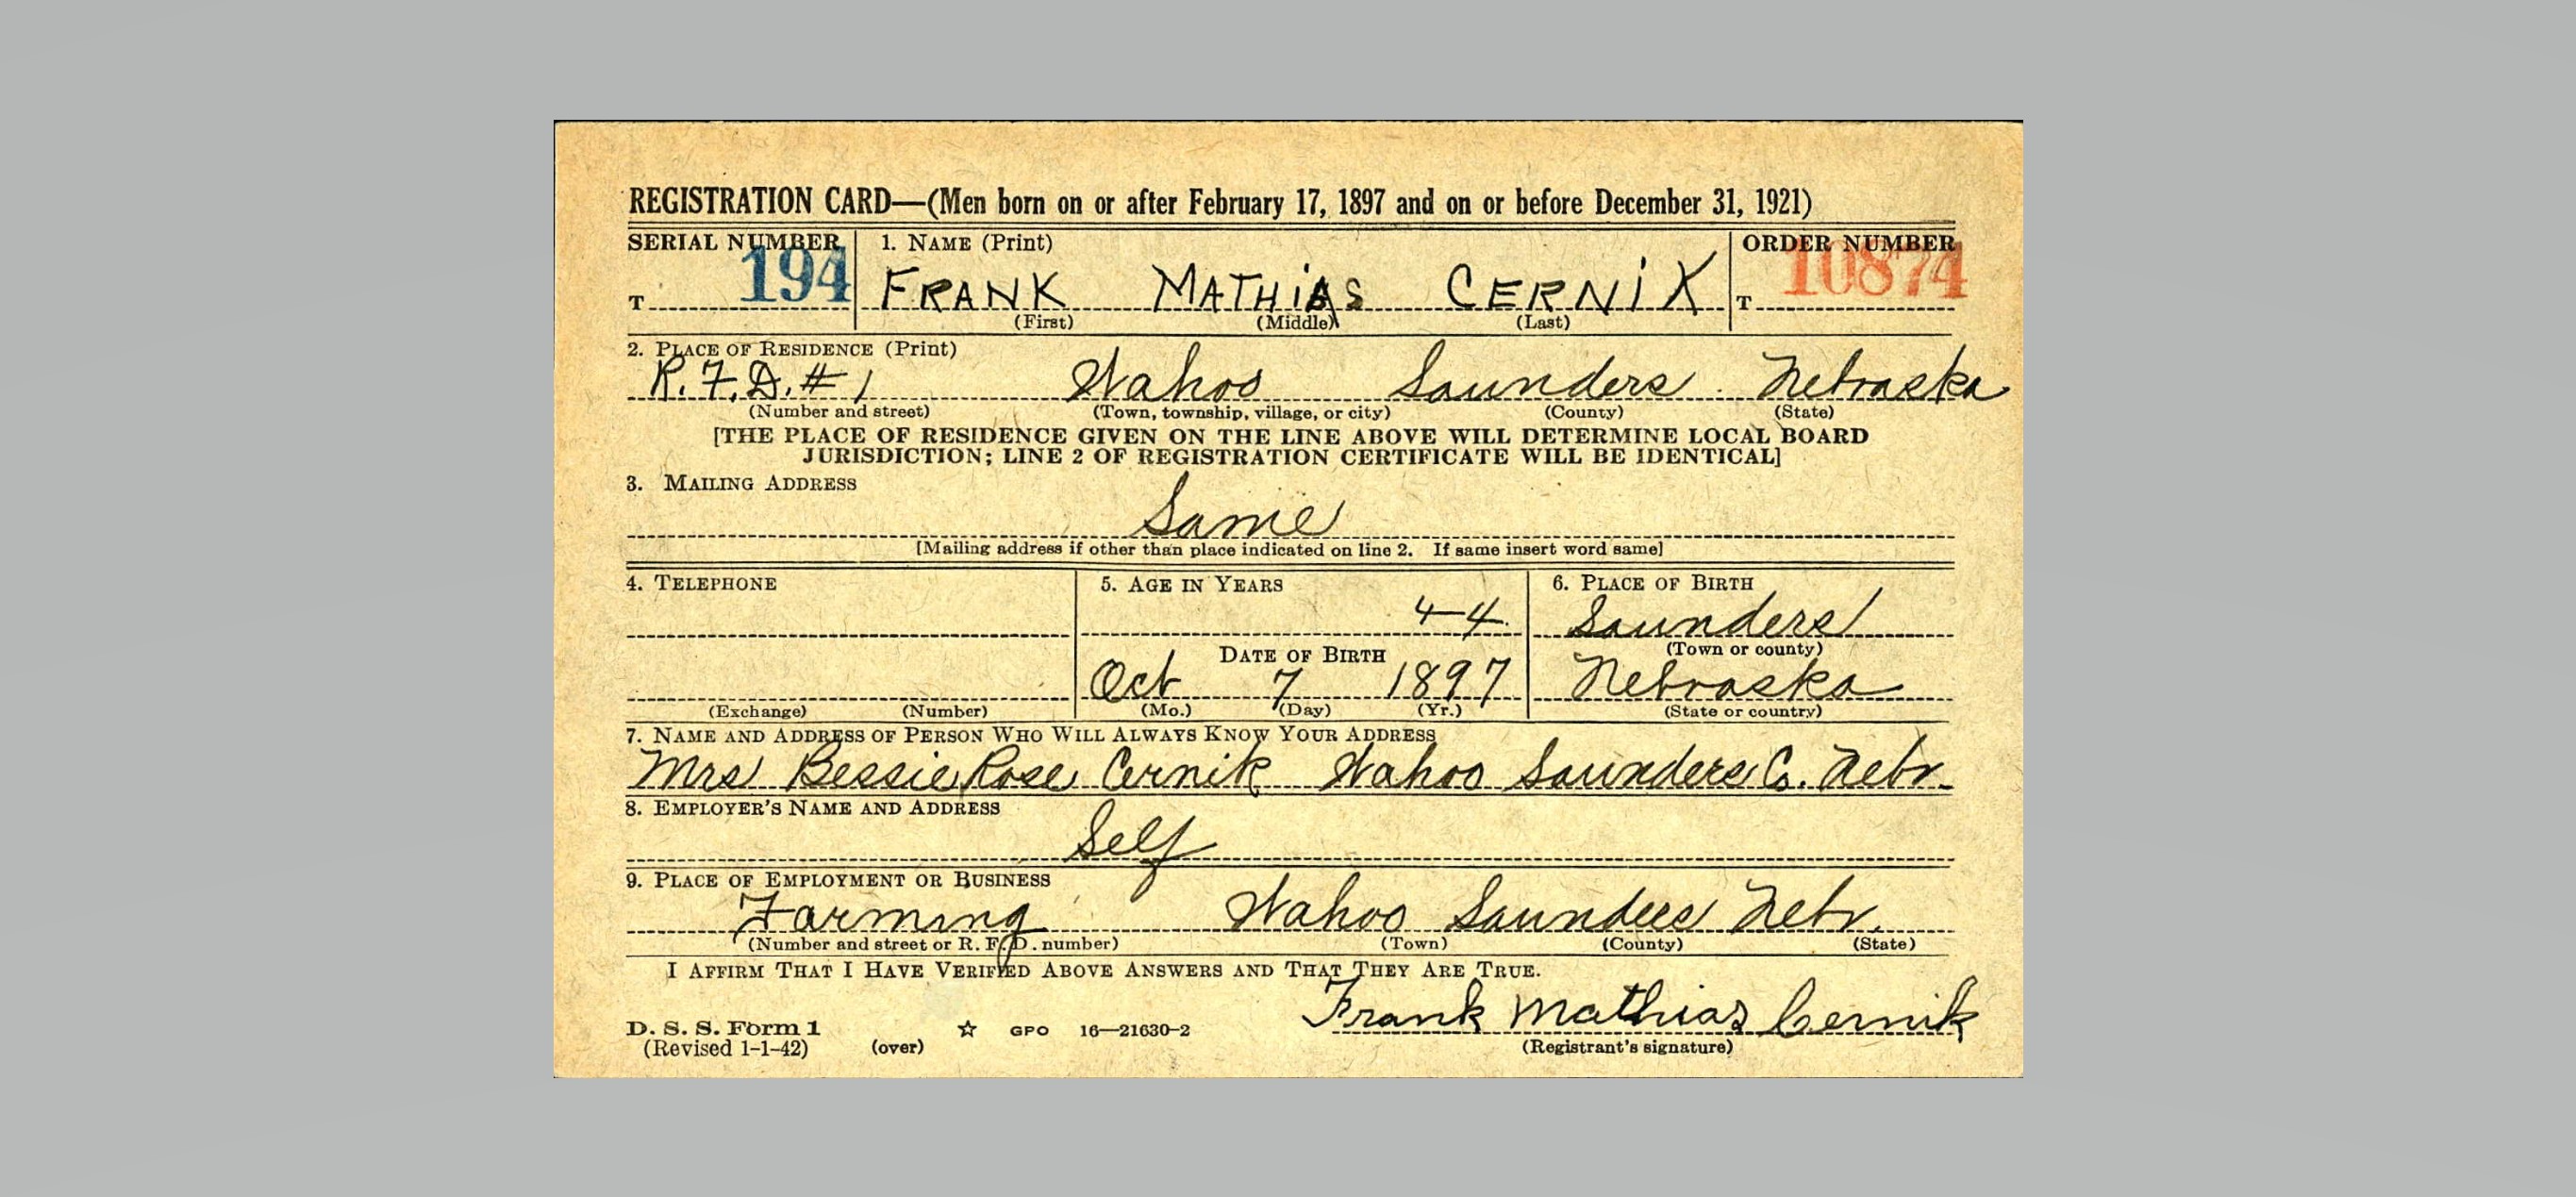 REGISTRATION CARD—(Men born on or after February 17, 1897 and on or before December 31, 1921)
SERIAL NUMBER 1. NAME (Print) ORDER NUMBER
T 194 FRANK MATHIAS CERNIK T 10874
(First) (Middle) (Last)
2. PLACE OF RESIDENCE (Print)
R.F.D. # 1 Wahoo Saunders Nebraska
(Number and street) (Town, township, village, or city) (County) (State)
[THE PLACE OF RESIDENCE GIVEN ON THE LINE ABOVE WILL DETERMINE LOCAL BOARD
JURISDICTION; LINE 2 OF REGISTRATION CERTIFICATE WILL BE IDENTICAL]
3. MAILING ADDRESS
Same
[Mailing address if other than place indicated on line 2. If same insert word same]
4. TELEPHONE 5. AGE IN YEARS 6. PLACE OF BIRTH
44 Saunders
DATE OF BIRTH (Town or county)
Oct 7 1897 Nebraska
(Exchange) (Number) (Mo.) (Day) (Yr.) (State or country)
7. NAME AND ADDRESS OF PERSON WHO WILL ALWAYS KNOW YOUR ADDRESS
Mrs Bessie Rose Cernik Wahoo Saunders Co. Nebr.
8. EMPLOYER'S NAME AND ADDRESS
Self
9. PLACE OF EMPLOYMENT OR BUSINESS
Farming Wahoo Saunders Nebr.
(Number and street or R. F. D. number) (Town) (County) (State)
I AFFIRM THAT I HAVE VERIFIED ABOVE ANSWERS AND THAT THEY ARE TRUE.
Frank Mathias Cernik
D. S. S. Form 1 ☆ GPO 16—21630-2
(Revised 1-1-42) (over) (Registrant's signature)